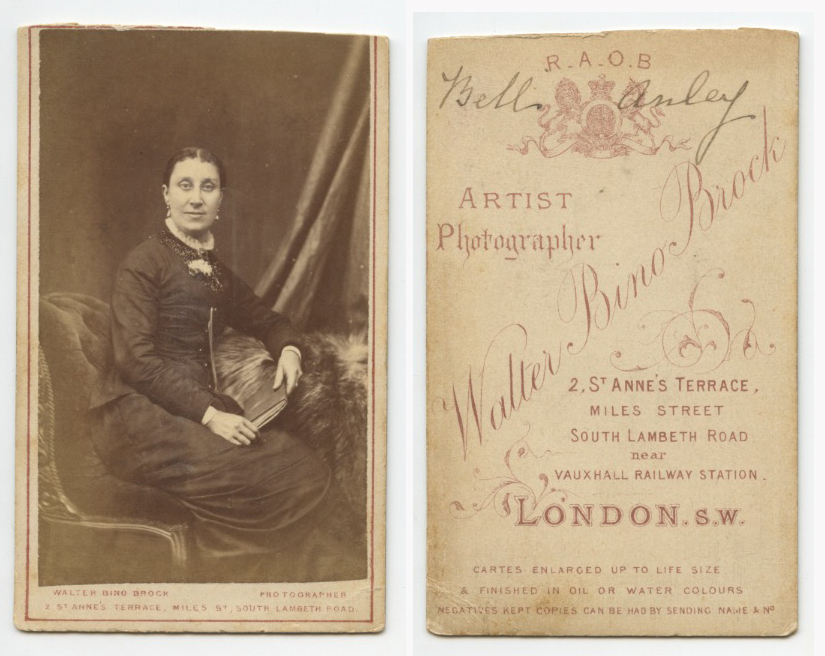 WALTER BINO BROCK PHOTOGRAPHER
2 ST ANNE'S TERRACE, MILES ST, SOUTH LAMBETH ROAD.
R.A.O.B
Bell Anley
ARTIST
Photographer
Walter Bino Brock
2, ST ANNE'S TERRACE,
MILES STREET
SOUTH LAMBETH ROAD
near
VAUXHALL RAILWAY STATION.
LONDON. S.W.
CARTES ENLARGED UP TO LIFE SIZE
& FINISHED IN OIL OR WATER COLOURS
NEGATIVES KEPT COPIES CAN BE HAD BY SENDING NAME & NO